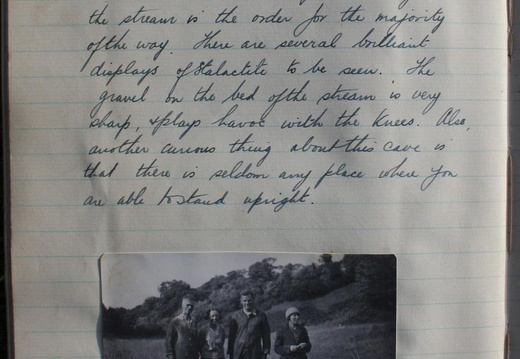 the stream is the order for the majority
of the way. There are several brilliant
displays of Stalactite to be seen. The
gravel on the bed of the stream is very
sharp, & plays havoc with the knees. Also,
another curious thing about this cave is
that there is seldom any place where you
are able to stand upright.